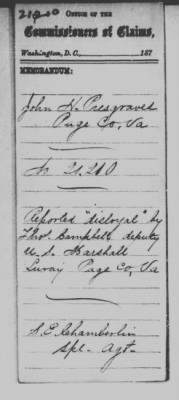 21210 OFFICE OF THE
Commissioners of Claims,
Washington, D.C., 187
MEMORANDUM:
John H. Presgraves
Page Co, Va
No 21,210
Reported "disloyal" by
Thos. Campbell, deputy
U.S. Marshall
Luray Page Co, Va
S.E. Chamberlin
Spl- Agt-